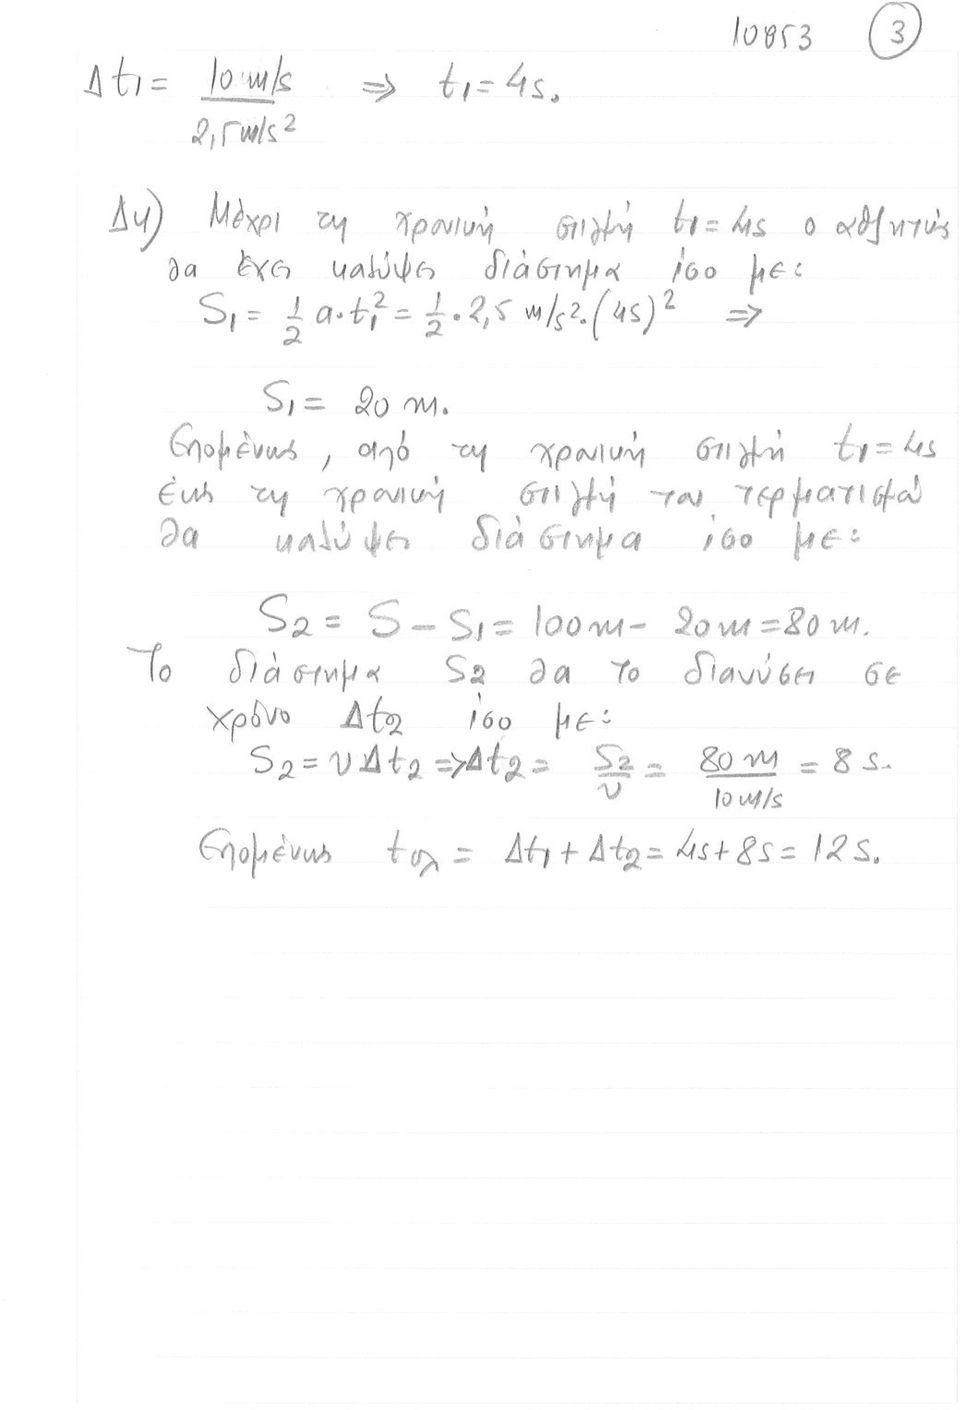 10853 3
Δt1 = 10 m/s / 2,5 m/s² ⇒ t1 = 4s.
Δ4) Μέχρι τη χρονική στιγμή t1 = 4s ο αθλητής
θα έχει καλύψει διάστημα ίσο με:
S1 = 1/2 a·t1² = 1/2 · 2,5 m/s²·(4s)² ⇒
S1 = 20 m.
Επομένως, από τη χρονική στιγμή t1 = 4s
έως τη χρονική στιγμή του τερματισμού
θα καλύψει διάστημα ίσο με:
S2 = S - S1 = 100m - 20m = 80 m.
Το διάστημα S2 θα το διανύσει σε
χρόνο Δt2 ίσο με:
S2 = υ Δt2 ⇒ Δt2 = S2/υ = 80 m / 10 m/s = 8 s.
Επομένως tολ = Δt1 + Δt2 = 4s + 8s = 12 s.